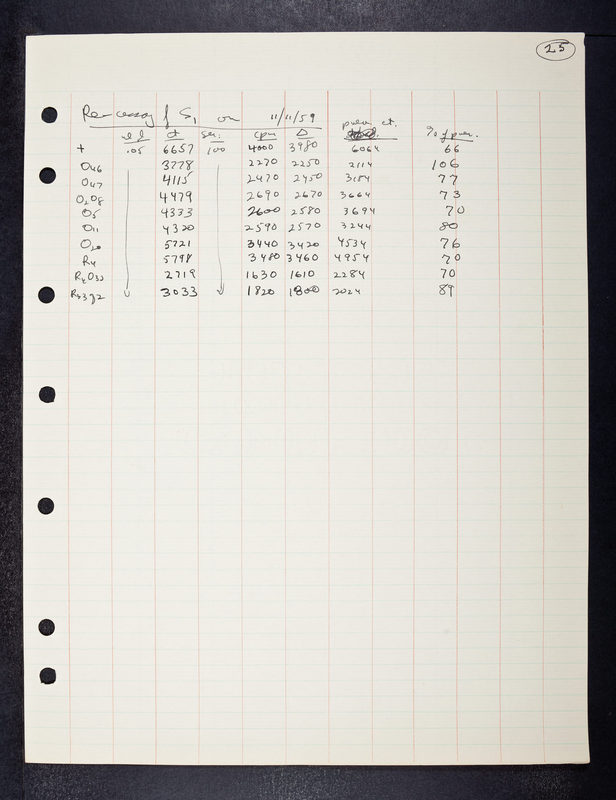 25
Re-assay of S1 on 11/11/59
prev. ct.
ct sec. cpm Δ % of prev.
+ .05 6657 100 4000 3980 6064 66
O46 3778 2270 2250 2114 106
O47 4115 2470 2450 3184 77
O2O8 4479 2690 2670 3664 73
O5 4333 2600 2580 3694 70
O11 4320 2590 2570 3244 80
O20 5721 3440 3420 4534 76
R4 5798 3480 3460 4954 70
2719 1630 1610 2284 70
3033 1820 1800 2024 89